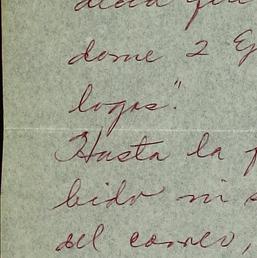 dome 2 Ej
logos".
Hasta la p
bido ni s
del correo,